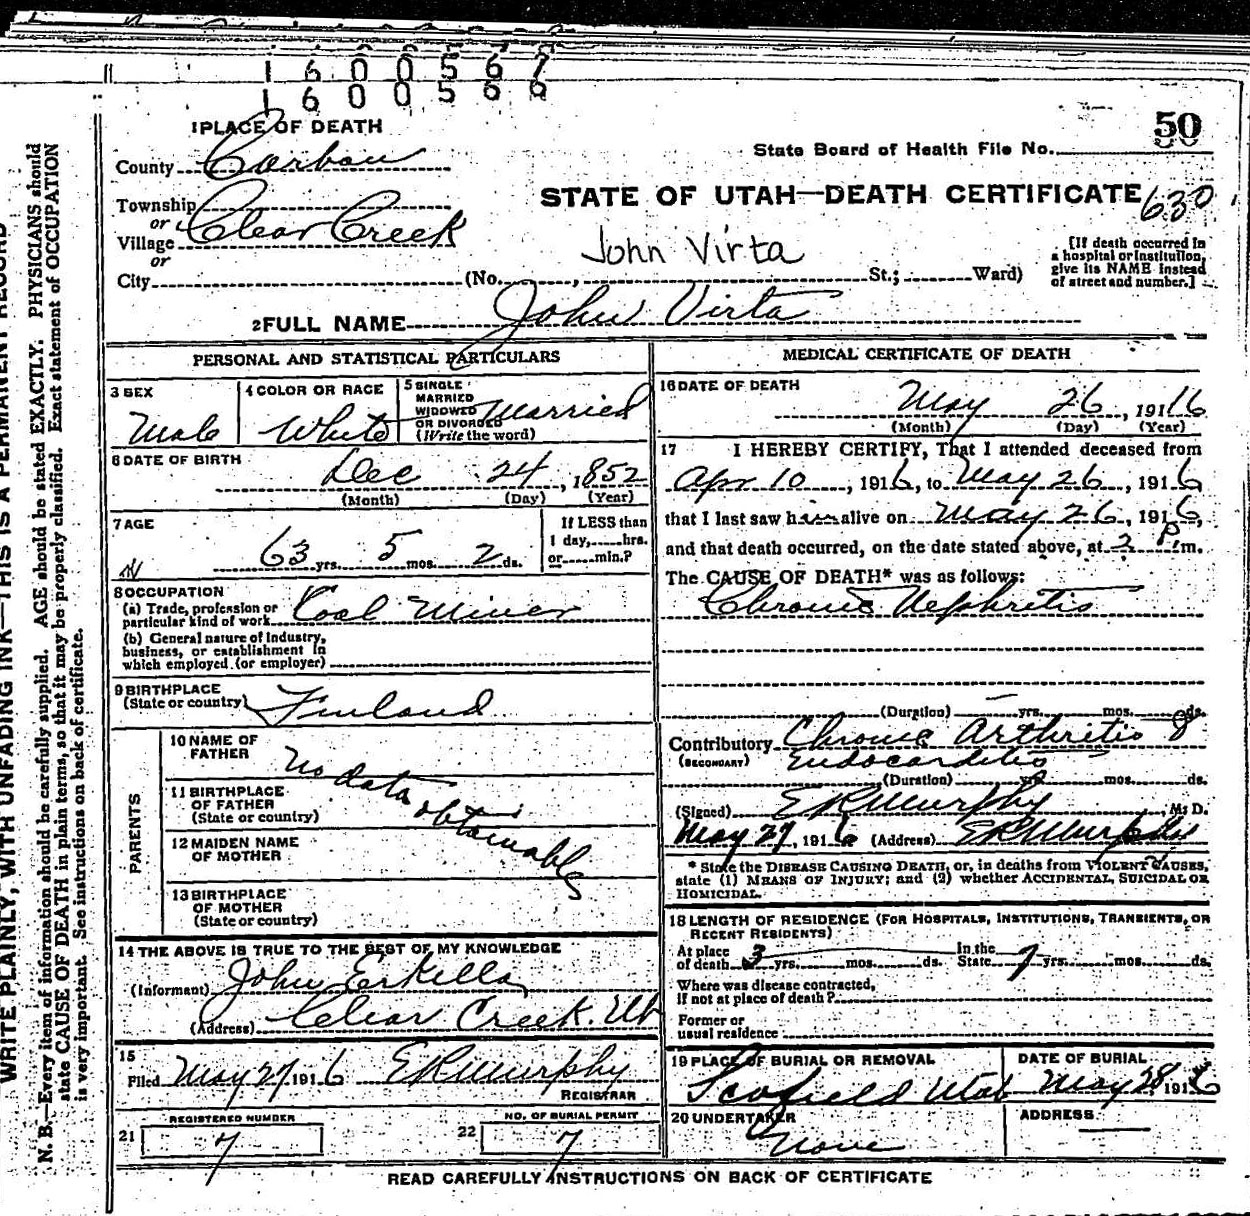 1 6 0 0 5 6 7
1 6 0 0 5 6 6
50
1 PLACE OF DEATH
State Board of Health File No.
County Carbon
STATE OF UTAH—DEATH CERTIFICATE 630
Township
or
Village Clear Creek
or
John Virta
[If death occurred in a hospital or institution, give its NAME instead of street and number.]
City (No. , St.; Ward)
2 FULL NAME John Virta
PERSONAL AND STATISTICAL PARTICULARS
3 SEX Male
4 COLOR OR RACE White
5 SINGLE MARRIED WIDOWED OR DIVORCED (Write the word) Married
6 DATE OF BIRTH Dec 24, 1852
(Month) (Day) (Year)
7 AGE
63 yrs. 5 mos. 2 ds.
If LESS than
1 day, hrs.
or min.?
8 OCCUPATION
(a) Trade, profession or
particular kind of work Coal Miner
(b) General nature of industry,
business, or establishment in
which employed (or employer)
9 BIRTHPLACE
(State or country) Finland
PARENTS
10 NAME OF
FATHER
11 BIRTHPLACE
OF FATHER
(State or country)
12 MAIDEN NAME
OF MOTHER
13 BIRTHPLACE
OF MOTHER
(State or country)
No data obtainable
14 THE ABOVE IS TRUE TO THE BEST OF MY KNOWLEDGE
(Informant) John Erkella
(Address) Clear Creek. Ut
15
Filed May 27 1916 ERMurphy
REGISTRAR
REGISTERED NUMBER
21 7
NO. OF BURIAL PERMIT
22 7
MEDICAL CERTIFICATE OF DEATH
16 DATE OF DEATH
May 26, 19116
(Month) (Day) (Year)
17 I HEREBY CERTIFY, That I attended deceased from
Apr 10, 1916, to May 26, 1916
that I last saw him alive on May 26, 1916,
and that death occurred, on the date stated above, at 2 P m.
The CAUSE OF DEATH* was as follows:
Chronic Nephritis
(Duration) yrs. mos. ds.
Contributory Chronic Arthritis &
(SECONDARY) Endocarditis
(Duration) yrs. mos. ds.
(Signed) ERMurphy M. D.
May 27, 1916 (Address) ERMurphy
* State the DISEASE CAUSING DEATH, or, in deaths from VIOLENT CAUSES,
state (1) MEANS OF INJURY; and (2) whether ACCIDENTAL, SUICIDAL OR
HOMICIDAL.
18 LENGTH OF RESIDENCE (FOR HOSPITALS, INSTITUTIONS, TRANSIENTS, OR
RECENT RESIDENTS)
At place
of death 3 yrs. mos. ds. In the State 7 yrs. mos. ds.
Where was disease contracted,
if not at place of death?
Former or
usual residence
19 PLACE OF BURIAL OR REMOVAL
Scofield Utah
DATE OF BURIAL
May 28, 1916
20 UNDERTAKER
None
ADDRESS
READ CAREFULLY INSTRUCTIONS ON BACK OF CERTIFICATE
WRITE PLAINLY, WITH UNFADING INK—THIS IS A PERMANENT RECORD
N. B.—Every item of information should be carefully supplied. AGE should be stated EXACTLY. PHYSICIANS should
state CAUSE OF DEATH in plain terms, so that it may be properly classified. Exact statement of OCCUPATION
is very important. See instructions on back of certificate.